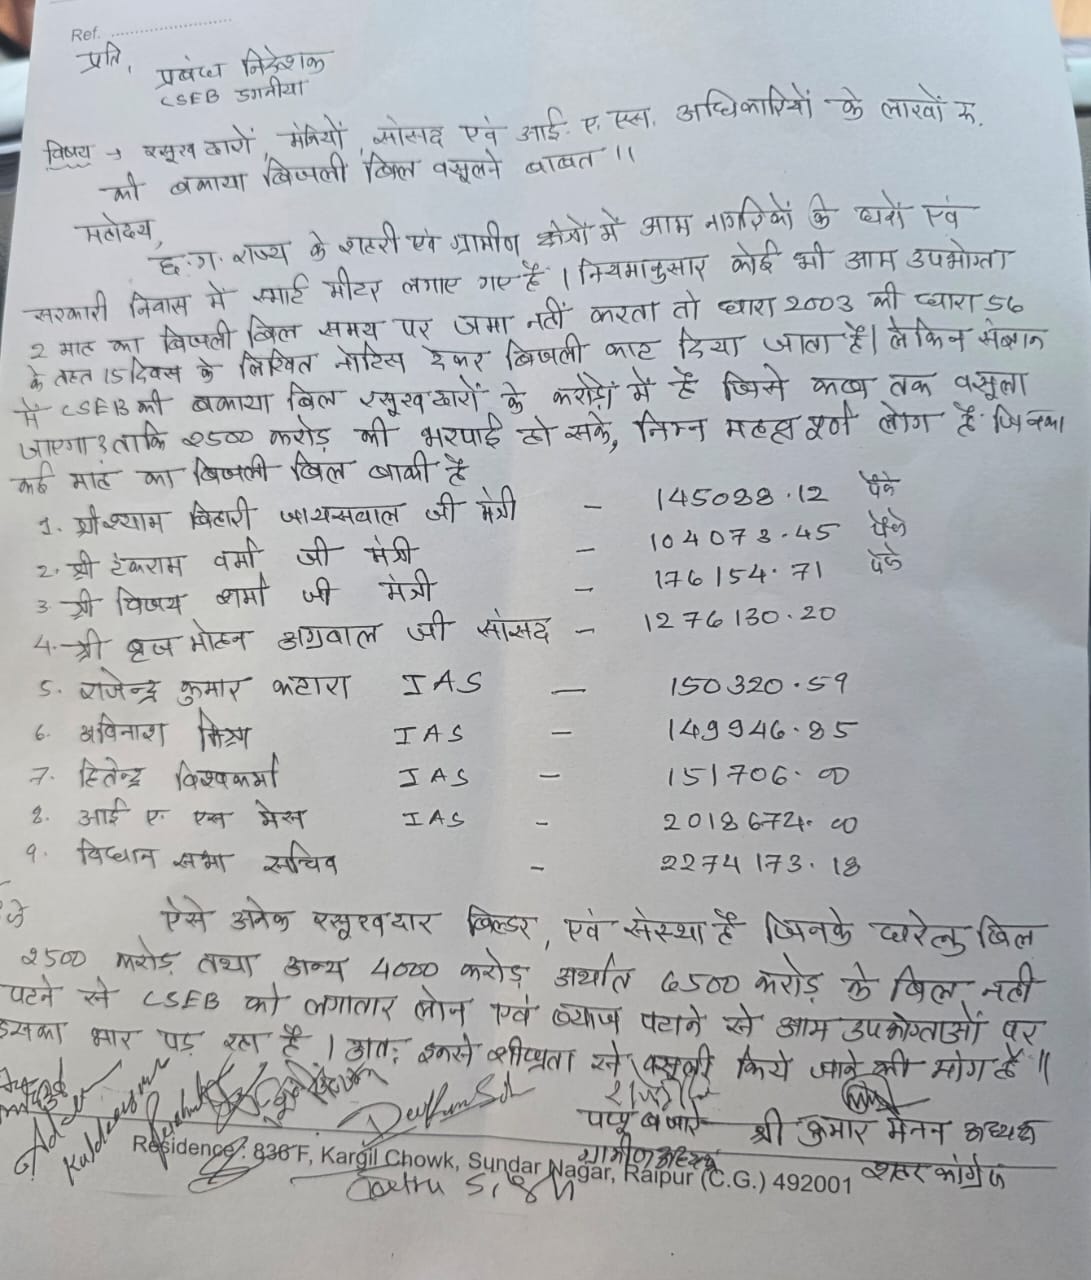 Ref. ..............................
प्रति,
प्रबंध निदेशक
CSEB डगनीया
विषय → रसूख दारों, मंत्रियों, सांसद एवं आई. ए. एस. अधिकारियों के लाखों रू.
की बकाया बिजली बिल वसूलने बाबत ।।
महोदय,
छ.ग. राज्य के शहरी एवं ग्रामीण क्षेत्रों में आम नागरिकों के घरों एवं
सरकारी निवास में स्मार्ट मीटर लगाए गए है । नियमानुसार कोई भी आम उपभोग्ता
2 माह का बिजली बिल समय पर जमा नहीं करता तो धारा 2003 की धारा 56
के तहत 15 दिवस के लिखित नोटिस देकर बिजली काट दिया जाता है। लेकिन संज्ञान
में CSEB की बकाया बिल रसूखदारों के करोड़ों में है जिसे कब तक वसूला
जाएगा ? ताकि 2500 करोड़ की भरपाई हो सके, निम्न महत्वपूर्ण लोग है जिनका
कई माह का बिजली बिल बाकी है
1. श्री श्याम बिहारी जायसवाल जी मंत्री – 145088.12 पैके
2. श्री टंकराम वर्मा जी मंत्री – 104073.45 पैके
3. श्री विजय शर्मा जी मंत्री – 176154.71 पैके
4. श्री बृज मोहन अग्रवाल जी सांसद – 1276130.20
5. राजेन्द्र कुमार कटारा IAS – 150320.59
6. अविनाश मिश्रा IAS – 149946.85
7. हितेन्द्र विश्वकर्मा IAS – 151706.00
8. आई ए. एस मेस IAS - 2018672.00
9. विधान सभा सचिव - 2274173.18
ऐसे अनेक रसूखदार बिल्डर, एवं संस्था है जिनके घरेलु बिल
2500 करोड़ तथा अन्य 4000 करोड़ अर्थात 6500 करोड़ के बिल नही
पटने से CSEB को लगातार लोन एवं ब्याज पटाने से आम उपभोग्ताओं पर
इसका भार पड़ रहा है । अतः इनसे शीघ्रता से वसूली किये जाने की मांग है ।।
पप्पू बंजारे श्री कुमार मेनन अध्यक्ष
ग्रामीण अध्यक्ष शहर कांग्रेस
Residence : 836 F, Kargil Chowk, Sundar Nagar, Raipur (C.G.) 492001